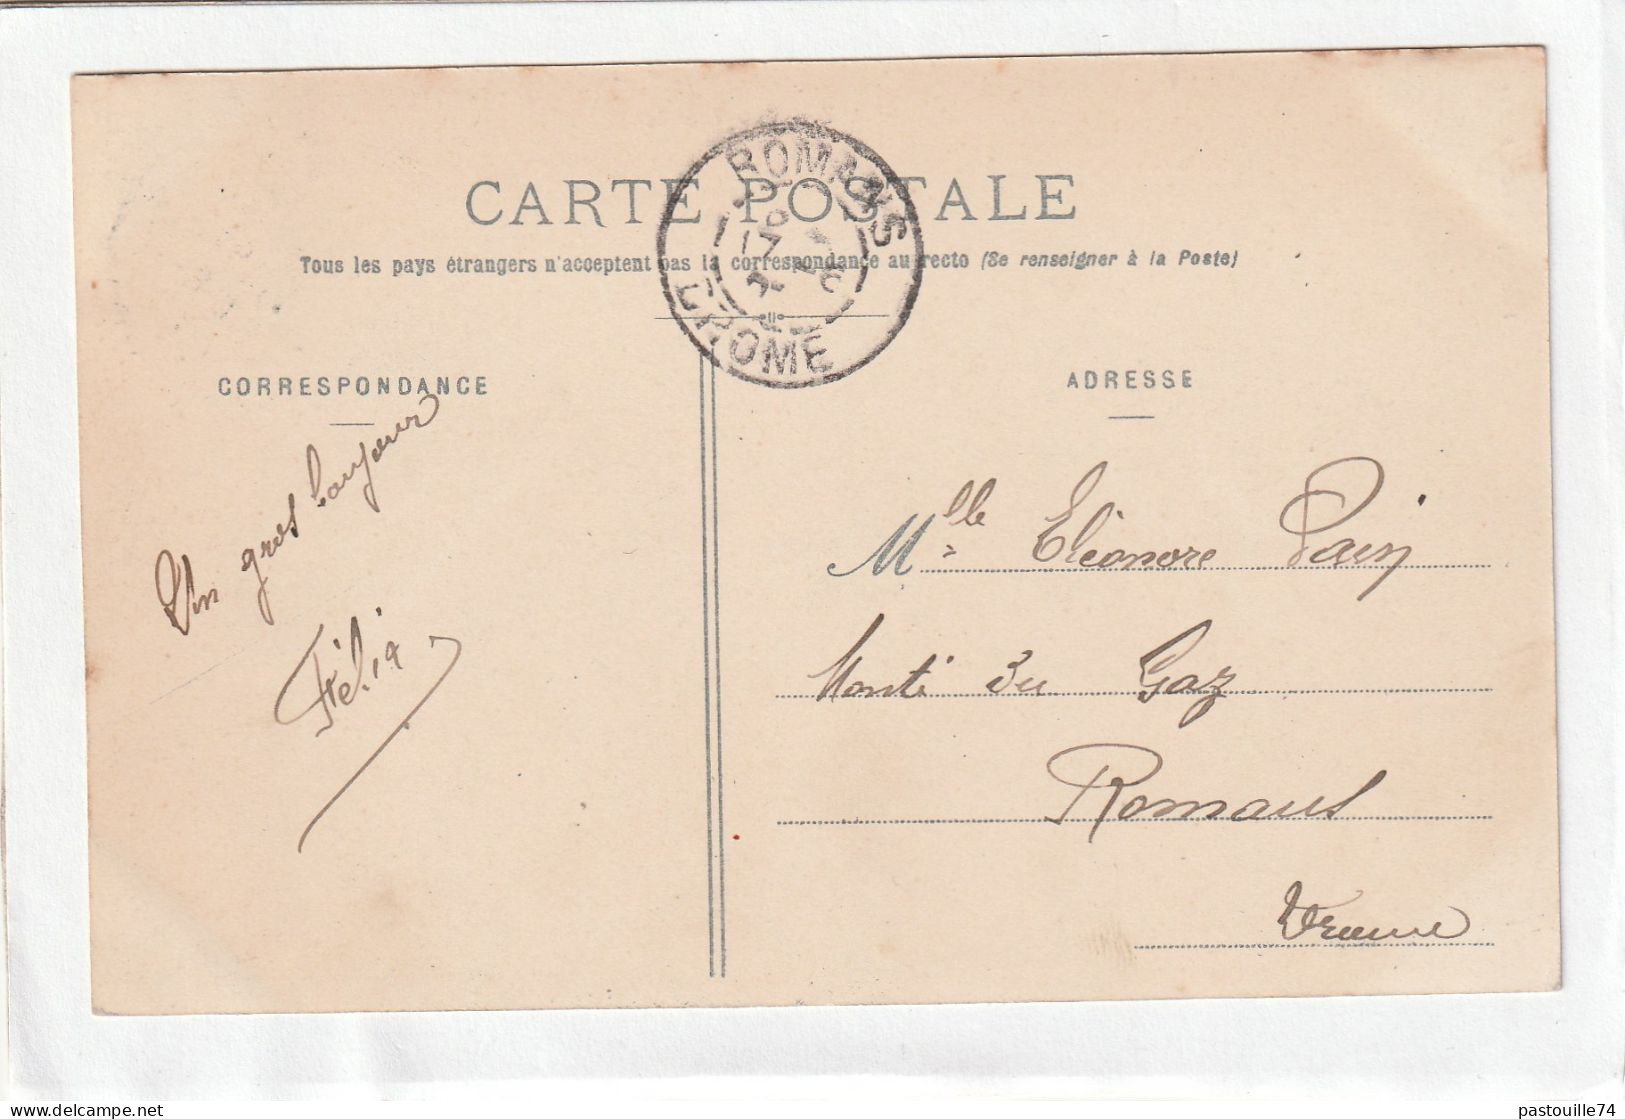 CARTE POSTALE
Tous les pays étrangers n'acceptent pas la correspondance au recto (Se renseigner à la Poste)
ROMANS
DROME
CORRESPONDANCE
ADRESSE
Un gros bonjour
Félia
Mlle Eléonore Pain
Monté du Gaz
Romans
Drome
delcampe.net
pastouille74